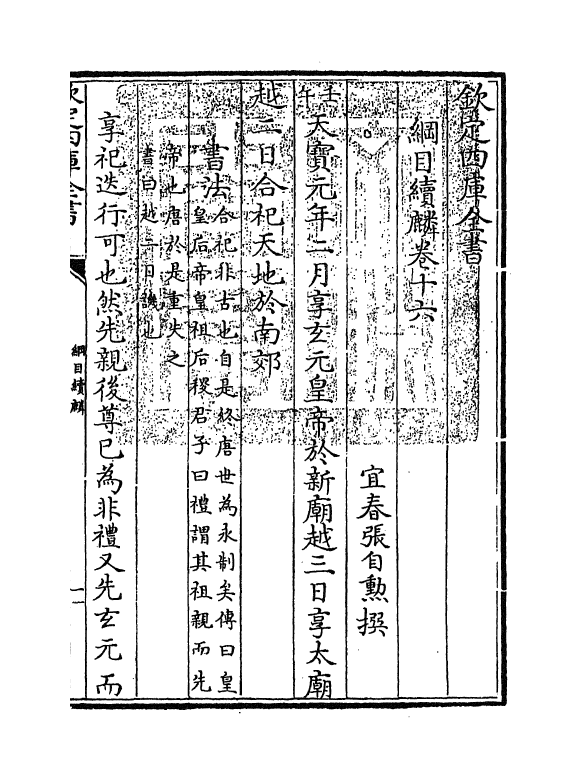 欽定四庫全書
綱目續麟卷十六
宜春張自勲撰
壬午
天寶元年二月享玄元皇帝於新廟越三日享太廟
越二日合祀天地於南郊
書法
合祀非古也自是終唐世為永制矣傳曰皇
皇后帝皇祖后稷君子曰禮謂其祖親而先
帝也唐於是重失之
書曰越二日譏也
享祀迭行可也然先親後尊已為非禮又先玄元而
欽定四庫全書
綱目續麟
一